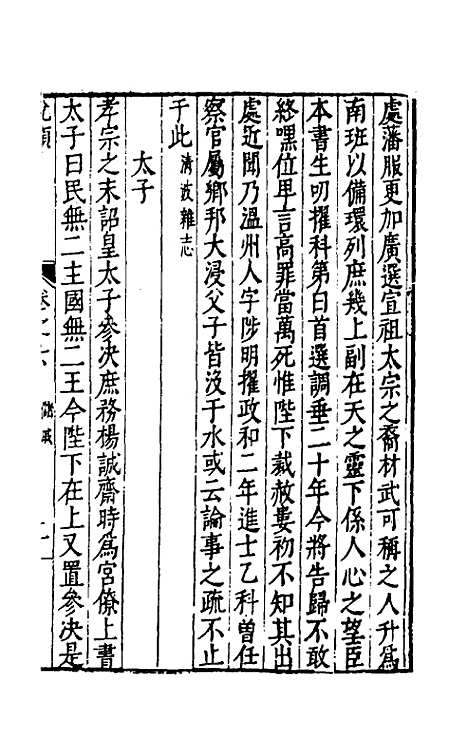 處藩服更加廣選宣祖太宗之裔材武可稱之人升為
南班以備環列庶幾上副在天之靈下係人心之望臣
本書生叨擢科第白首選調垂二十年今將告歸不敢
終嘿位卑言高罪當萬死惟陛下裁赦婁初不知其出
處近聞乃溫州人字陟明擢政和二年進士乙科曾任
察官屬鄉邦大浸父子皆沒于水或云論事之疏不止
于此 清波雜志
太子
孝宗之末詔皇太子參決庶務楊誠齋時為宮僚上書
太子曰民無二主國無二王今陛下在上又置參決是
卷之六